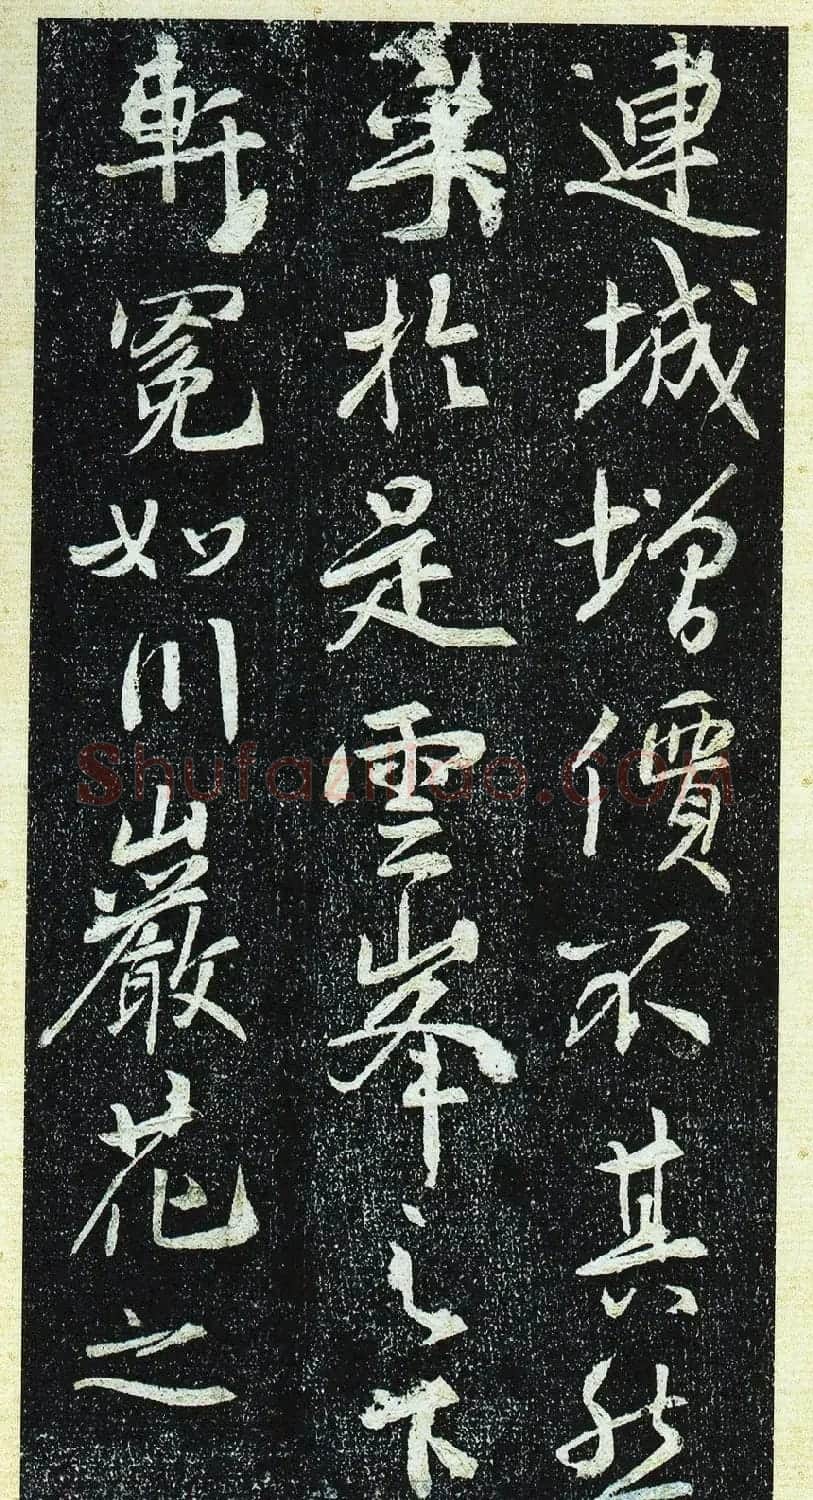 連城增價不其然
乘於是雲峯之下
軒冕如川巖花之
Shufaziliao.com